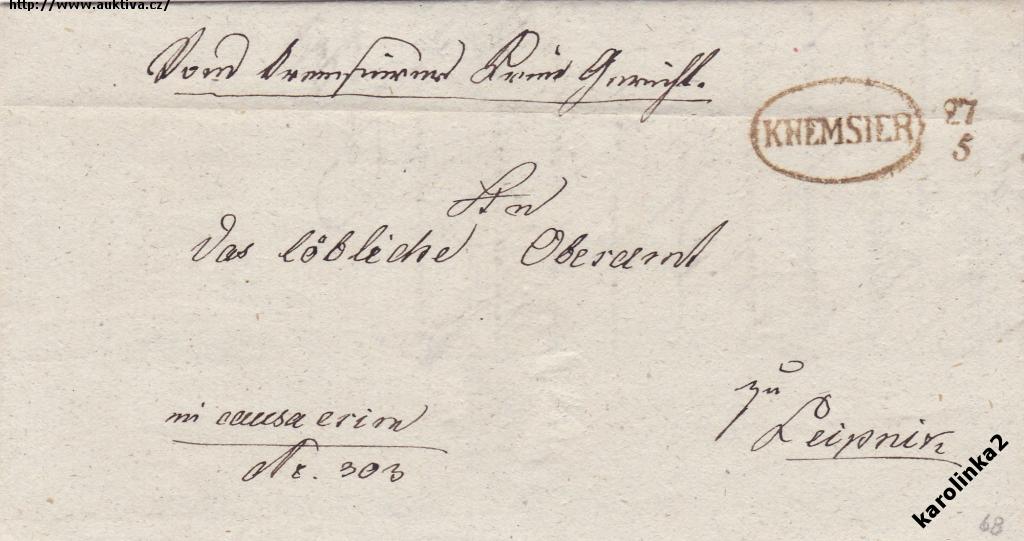 http://www.auktiva.cz/
Vom Kremsierer Krim Gericht.
KREMSIER
27
5
An
Das löbliche Oberamt
zu
Leipnik
in causa crim
Nr. 303
karolinka2
68